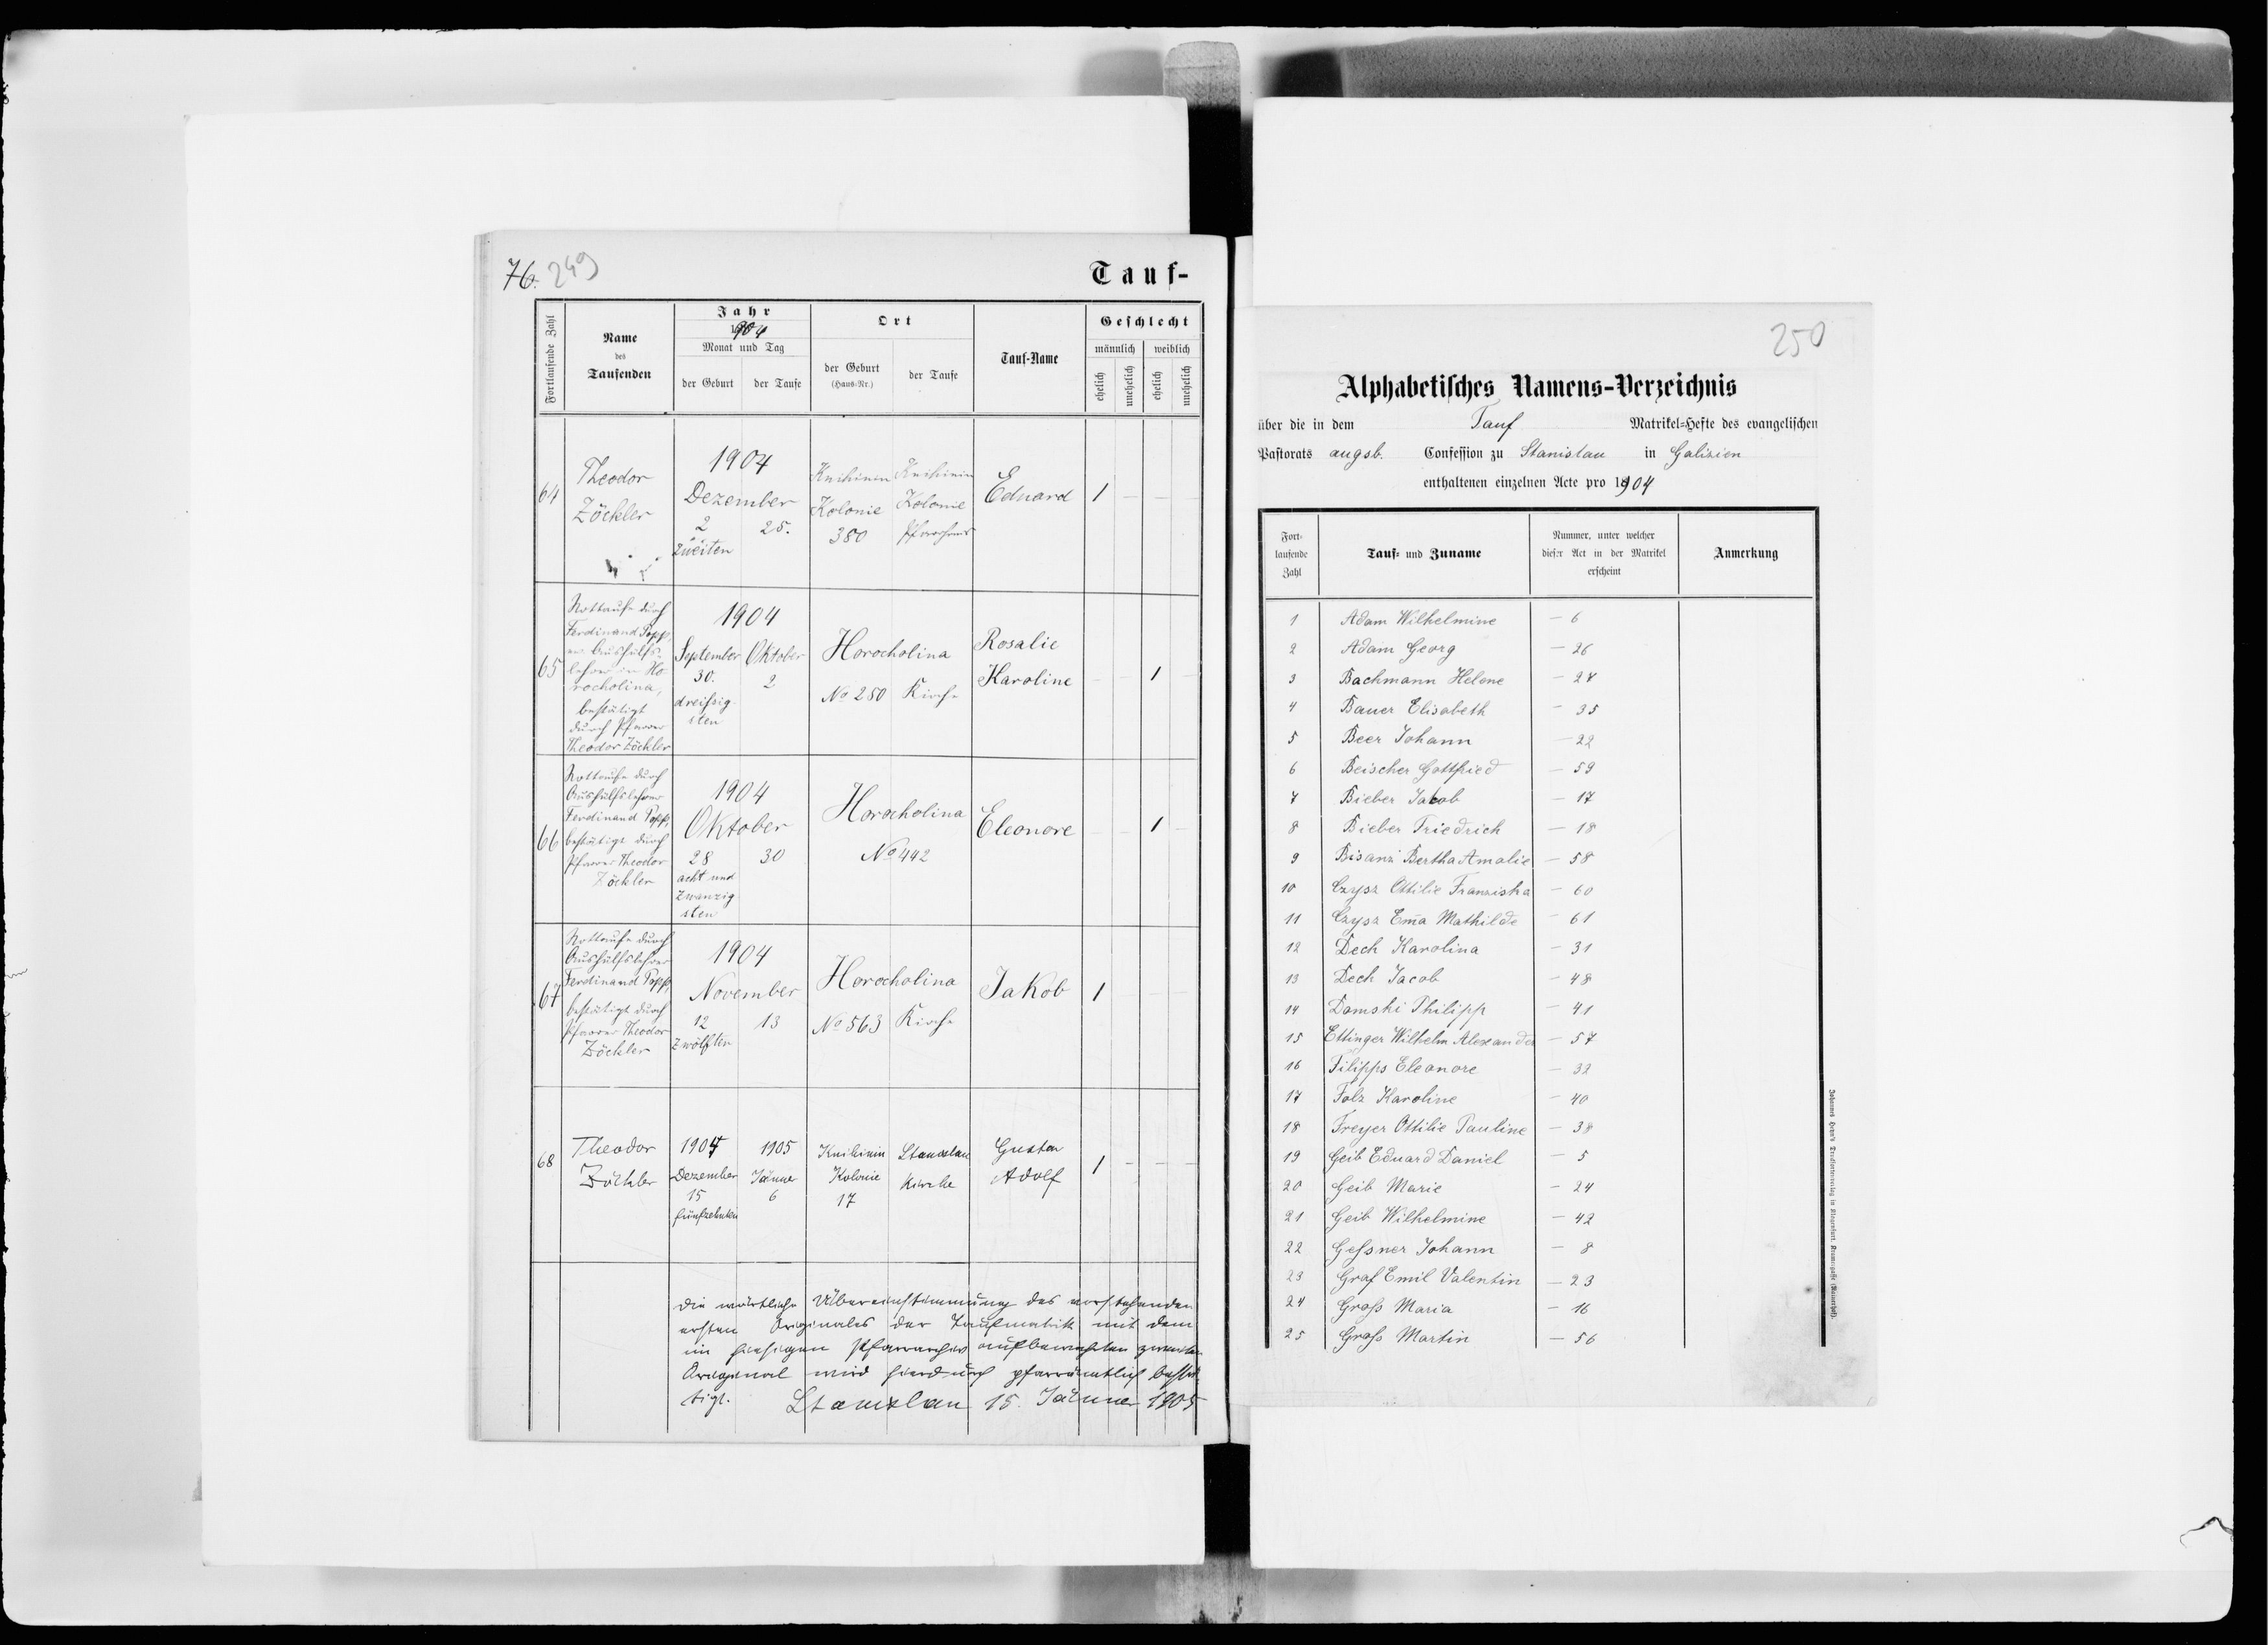 76. 249
Tauf-
Fortlaufende Zahl
Name
des
Taufenden
Jahr
1904
Monat und Tag
der Geburt
der Taufe
Ort
der Geburt
(Haus-Nr.)
der Taufe
Tauf-Name
Geschlecht
männlich
weiblich
ehelich
unehelich
ehelich
unehelich
64
Theodor
Zöckler
1904
Dezember
2 25.
zweiten
Knihinin
Kolonie
380
Knihinin
Kolonie
Pfarrhaus
Eduard
1 — — —
65
Nottaufe durch
Ferdinand Popp,
Aushülfs-
lehrer in Ho-
rocholina,
bestätigt
durch Pfarrer
Theodor Zöckler
1904
September Oktober
30. 2
dreißig-
sten
Horocholina
No 280 Kirche
Rosalie
Karoline
— — 1 —
66
Nottaufe durch
Aushülfslehrer
Ferdinand Popp,
bestätigt durch
Pfarrer Theodor
Zöckler
1904
Oktober
28 30
acht und
zwanzig
sten
Horocholina
No 442
Eleonore
— — 1 —
67
Nottaufe durch
Aushülfslehrer
Ferdinand Popp,
bestätigt durch
Pfarrer Theodor
Zöckler
1904
November
12 13
zwölften
Horocholina
No 563 Kirche
Jakob
1 — — —
68
Theodor
Zöckler
1904 1905
Dezember Jänner
15 6
fünfzehnten
Knihinin
Kolonie
17
Stanislau
Kirche
Gustav
Adolf
1 — — —
Die wörtliche Übereinstimmung des vorstehenden
ersten Originales der Taufmatrik mit dem
im hiesigen Pfarrarchiv aufbewahrten zweiten
Original wird hierdurch pfarrämtlich bestä-
tigt. Stanislau 15. Jänner 1905
250
Alphabetisches Namens-Verzeichnis
über die in dem Tauf Matrikel-Hefte des evangelischen
Pastorats augsb. Confession zu Stanislau in Galizien
enthaltenen einzelnen Acte pro 1904
Fort-
laufende
Zahl
Tauf- und Zuname
Nummer, unter welcher
dieser Act in der Matrikel
erscheint
Anmerkung
1 Adam Wilhelmine — 6
2 Adam Georg — 26
3 Bachmann Helene — 27
4 Bauer Elisabeth — 35
5 Beer Johann — 22
6 Beischer Gottfried — 59
7 Bieber Jakob — 17
8 Bieber Friedrich — 18
9 Bisanz Bertha Amalie — 58
10 Czysz Ottilie Franziska — 60
11 Czysz Em̄a Mathilde — 61
12 Dech Karolina — 31
13 Dech Jacob — 48
14 Domski Philipp — 41
15 Ettinger Wilhelm Alexander — 57
16 Filipps Eleonore — 32
17 Folz Karoline — 40
18 Freyer Ottilie Pauline — 38
19 Geib Eduard Daniel — 5
20 Geib Marie — 24
21 Geib Wilhelmine — 42
22 Geßner Johann — 8
23 Graf Emil Valentin — 23
24 Groß Maria — 16
25 Groß Martin — 56